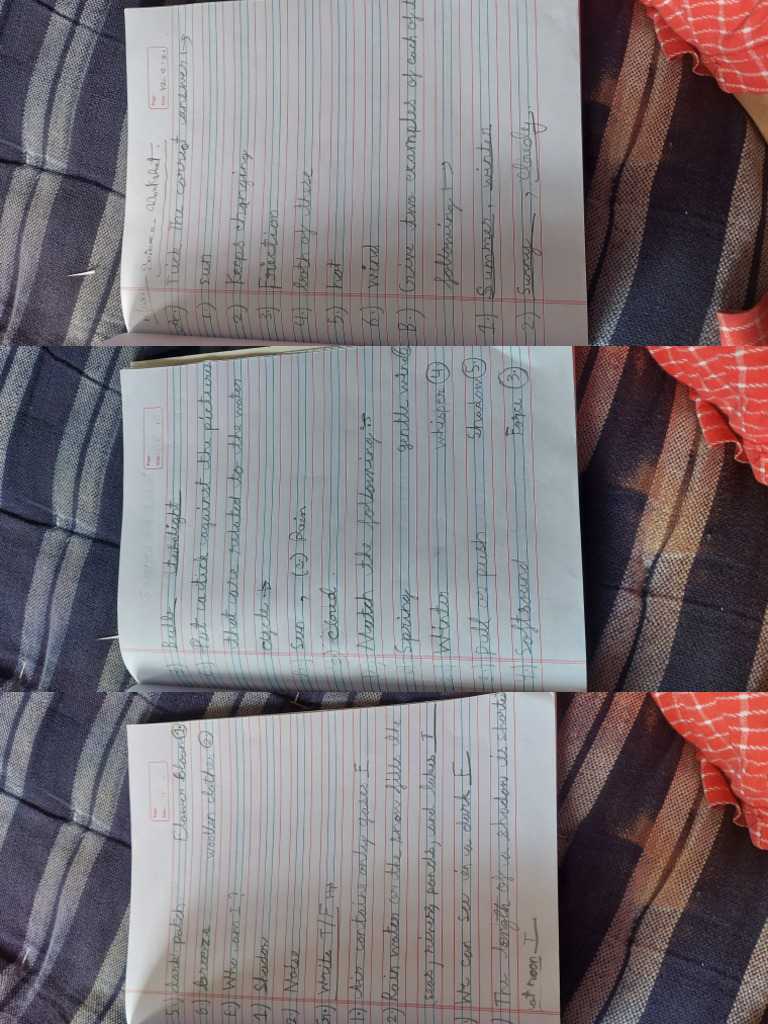 Page:
Date:
Science Worksheet.
Tick The correct answer :→
1.) sun
2.) Keeps changing
3.) Friction
4.) both of these
5.) hot
6.) wind
B.) Give two examples of each of
following :→
1) Summer, winter
2) Sunny, Cloudy.
Page:
Date:
Bulb torchlight
C) Put a tick against the picture
that are related to the water
cycle →
Sun, (2) Rain
3) cloud.
Match the following :-
Spring gentle wind
Winter whisper ④
Pull or push Shadow ⑤
4) Soft sound Force ③
Page:
Date:
5) dark patch Flower bloom ①
6) breeze woollen clothes ②
E) Who am I?
1) Shadow
2) Noise
Write T/F →
1.) Air contains only gases F
2) Rain water or the snow fills the
seas, rivers, ponds, and lakes T
We can see in a dark F
The length of a shadow is
at noon T